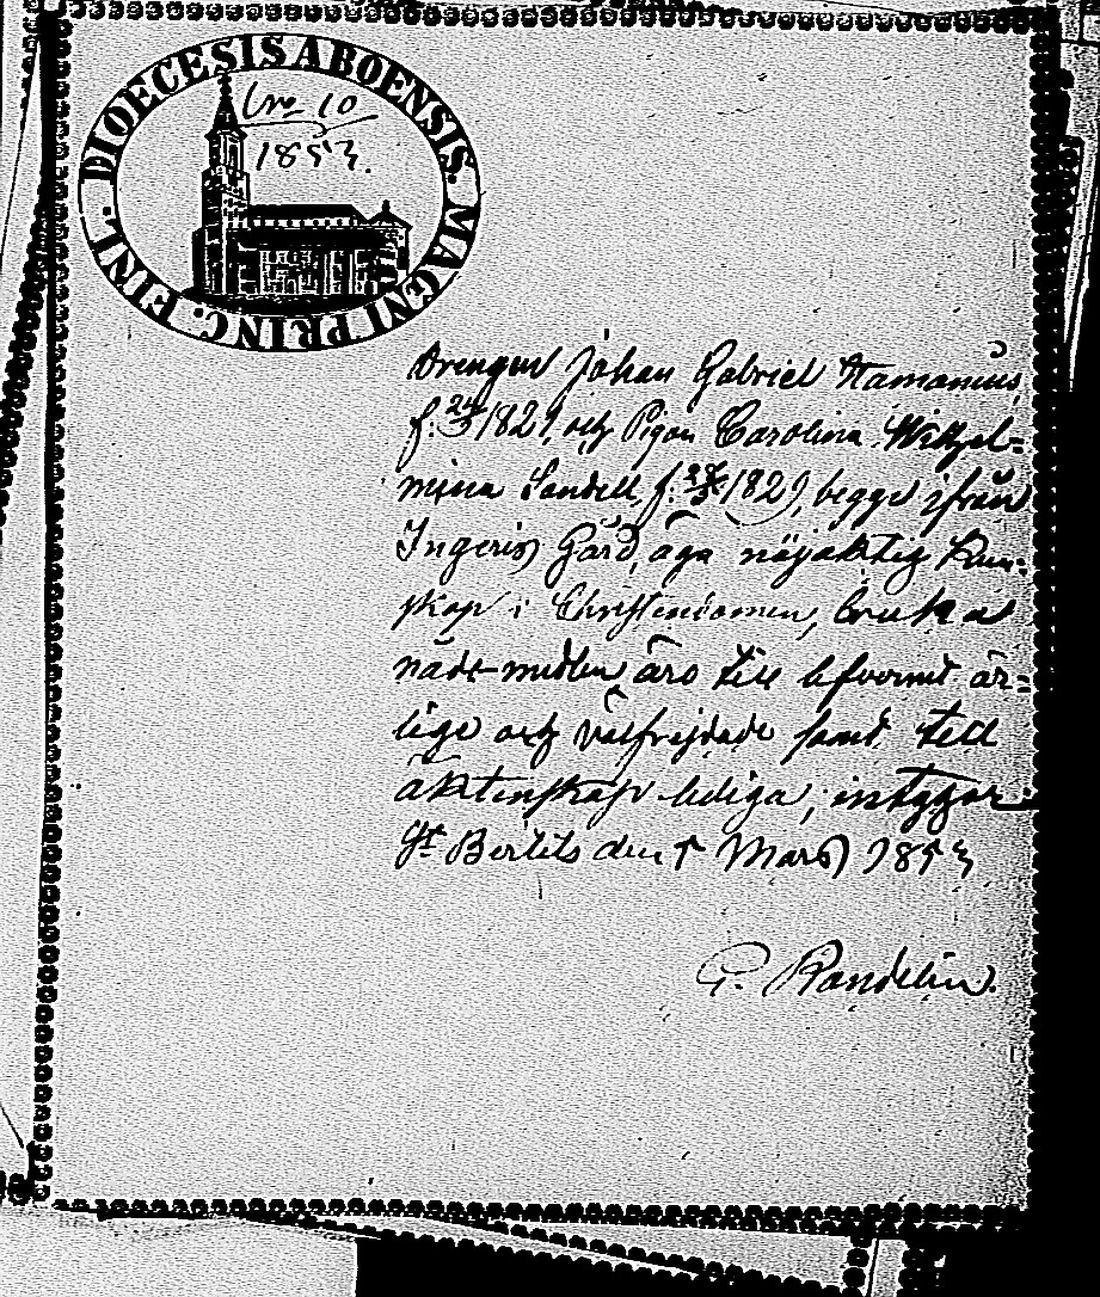 DIOECESIS ABOENSIS. MAGNI PRINC. FINL.
No 10
1853.
Drengen Johan Gabriel
f. 24/3 1829, och Pigan Carolina Wilhel=
mina Sandell, f. 1829, begge ifrån
Ingeris Gård, äga nöjaktig kun=
skap i Christendomen, bruka
nådemedlen äro till lefvernet är=
lige och välfrejdade samt till
äktenskap lediga; intygar
St Bertels den 5 Mars 1853
G. Randelin.